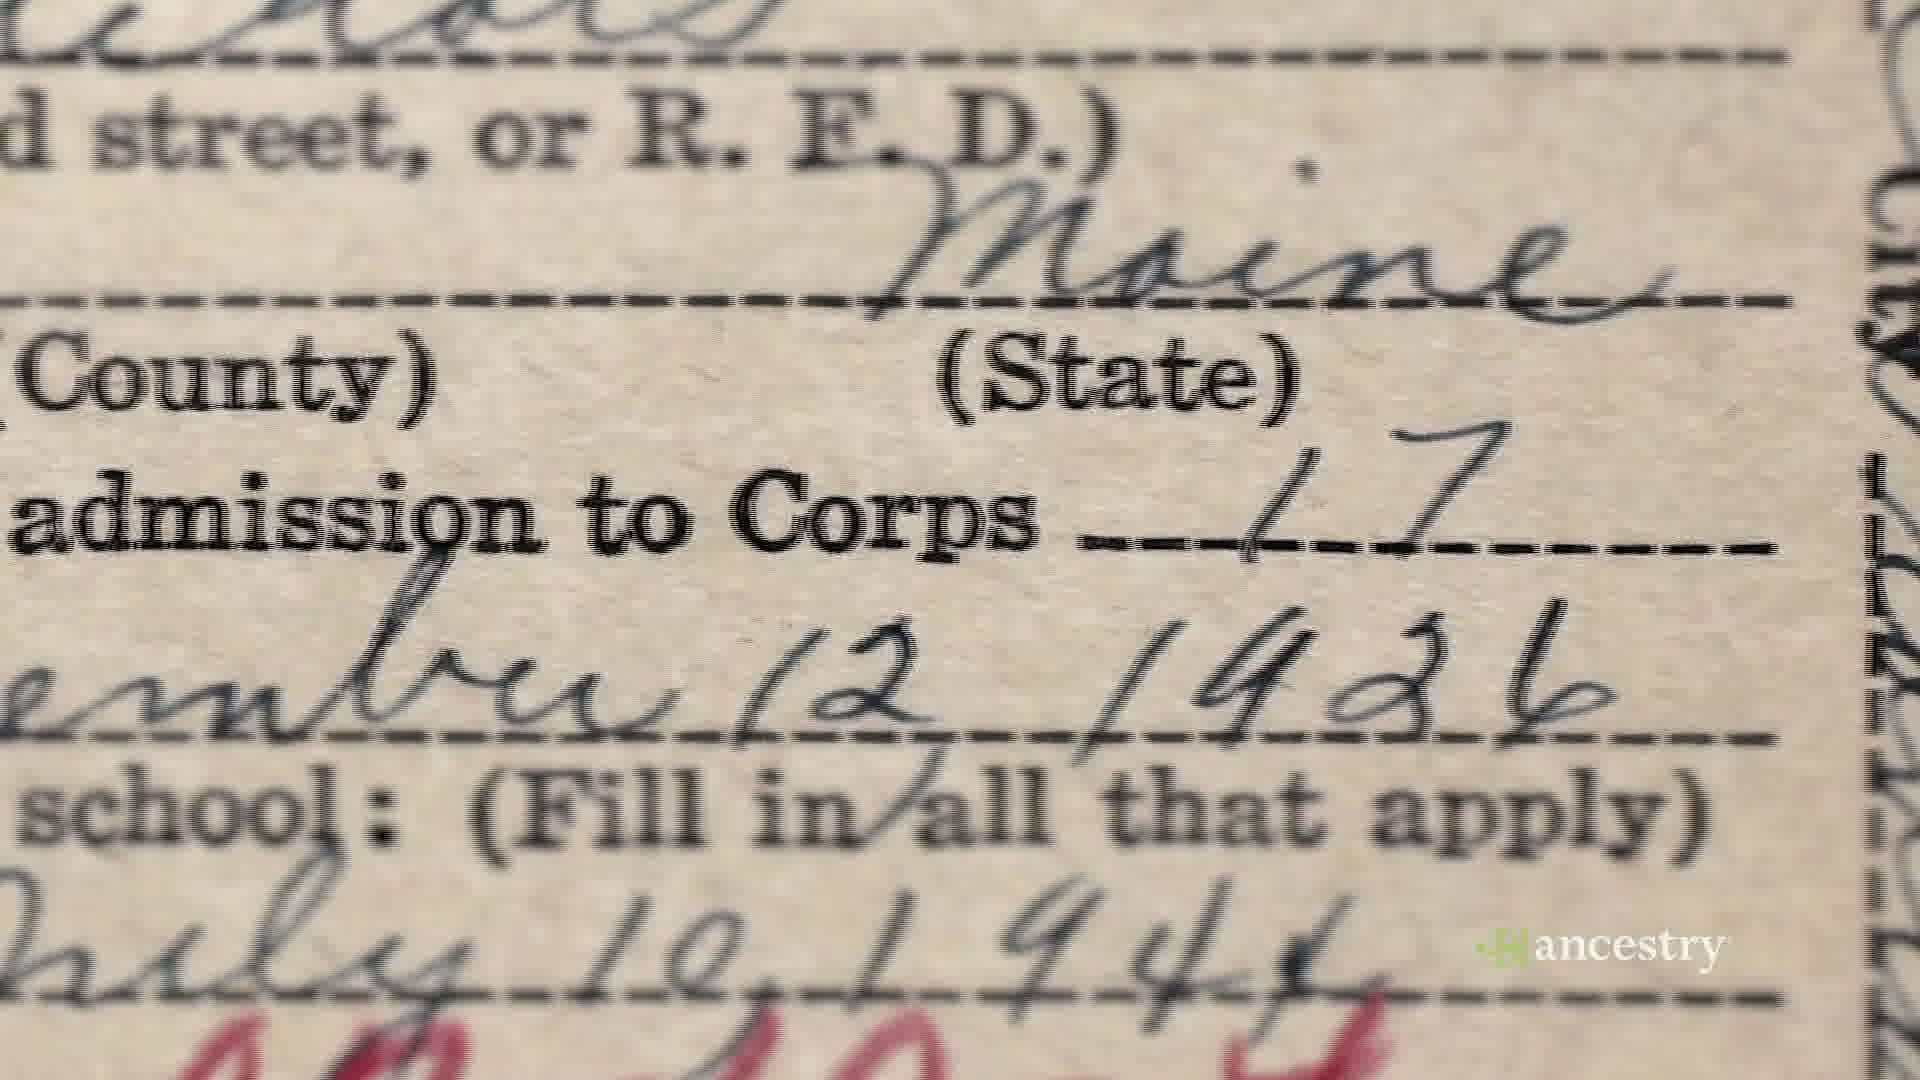 d street, or R. F. D.)
Maine
(County) (State)
admission to Corps 17
ember 12, 1926
school: (Fill in all that apply)
July 10, 194
City
ancestry